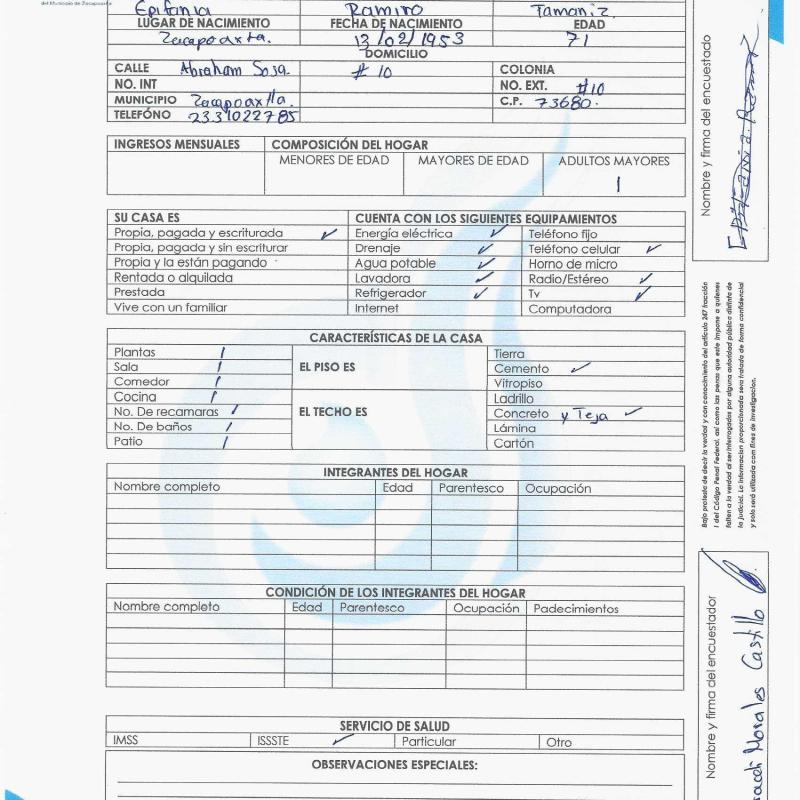 del Municipio de Zacapoaxtla
Epifania Ramiro Tamaniz
LUGAR DE NACIMIENTO FECHA DE NACIMIENTO EDAD
Zacapoaxta. 13/02/1953 71
DOMICILIO
CALLE Abraham Sosa. # 10 COLONIA
NO. INT NO. EXT. #10
MUNICIPIO Zacapoaxtla. C.P. 73680.
TELEFÓNO 2331022785
INGRESOS MENSUALES COMPOSICIÓN DEL HOGAR
MENORES DE EDAD MAYORES DE EDAD ADULTOS MAYORES
1
SU CASA ES CUENTA CON LOS SIGUIENTES EQUIPAMIENTOS
Propia, pagada y escriturada ✓ Energía eléctrica ✓ Teléfono fijo
Propia, pagada y sin escriturar Drenaje ✓ Teléfono celular ✓
Propia y la están pagando Agua potable ✓ Horno de micro
Rentada o alquilada Lavadora ✓ Radio/Estéreo ✓
Prestada Refrigerador ✓ Tv ✓
Vive con un familiar Internet Computadora
CARACTERÍSTICAS DE LA CASA
Plantas 1 Tierra
Sala 1 EL PISO ES Cemento ✓
Comedor 1 Vitropiso
Cocina 1 Ladrillo
No. De recamaras 1 EL TECHO ES Concreto y Teja ✓
No. De baños 1 Lámina
Patio 1 Cartón
INTEGRANTES DEL HOGAR
Nombre completo Edad Parentesco Ocupación
CONDICIÓN DE LOS INTEGRANTES DEL HOGAR
Nombre completo Edad Parentesco Ocupación Padecimientos
SERVICIO DE SALUD
IMSS ISSSTE ✓ Particular Otro
OBSERVACIONES ESPECIALES:
Nombre y firma del encuestado
Bajo protesta de decir la verdad y con conocimiento del artículo 247 fracción
I del Código Penal Federal, así como las penas que este impone a quienes
falten a la verdad al ser interrogados por alguna autoridad pública distinta de
la judicial. La información proporcionada sera tratada de forma confidencial
y solo será utilizada con fines de investigacion.
Nombre y firma del encuestador
Morales Castillo